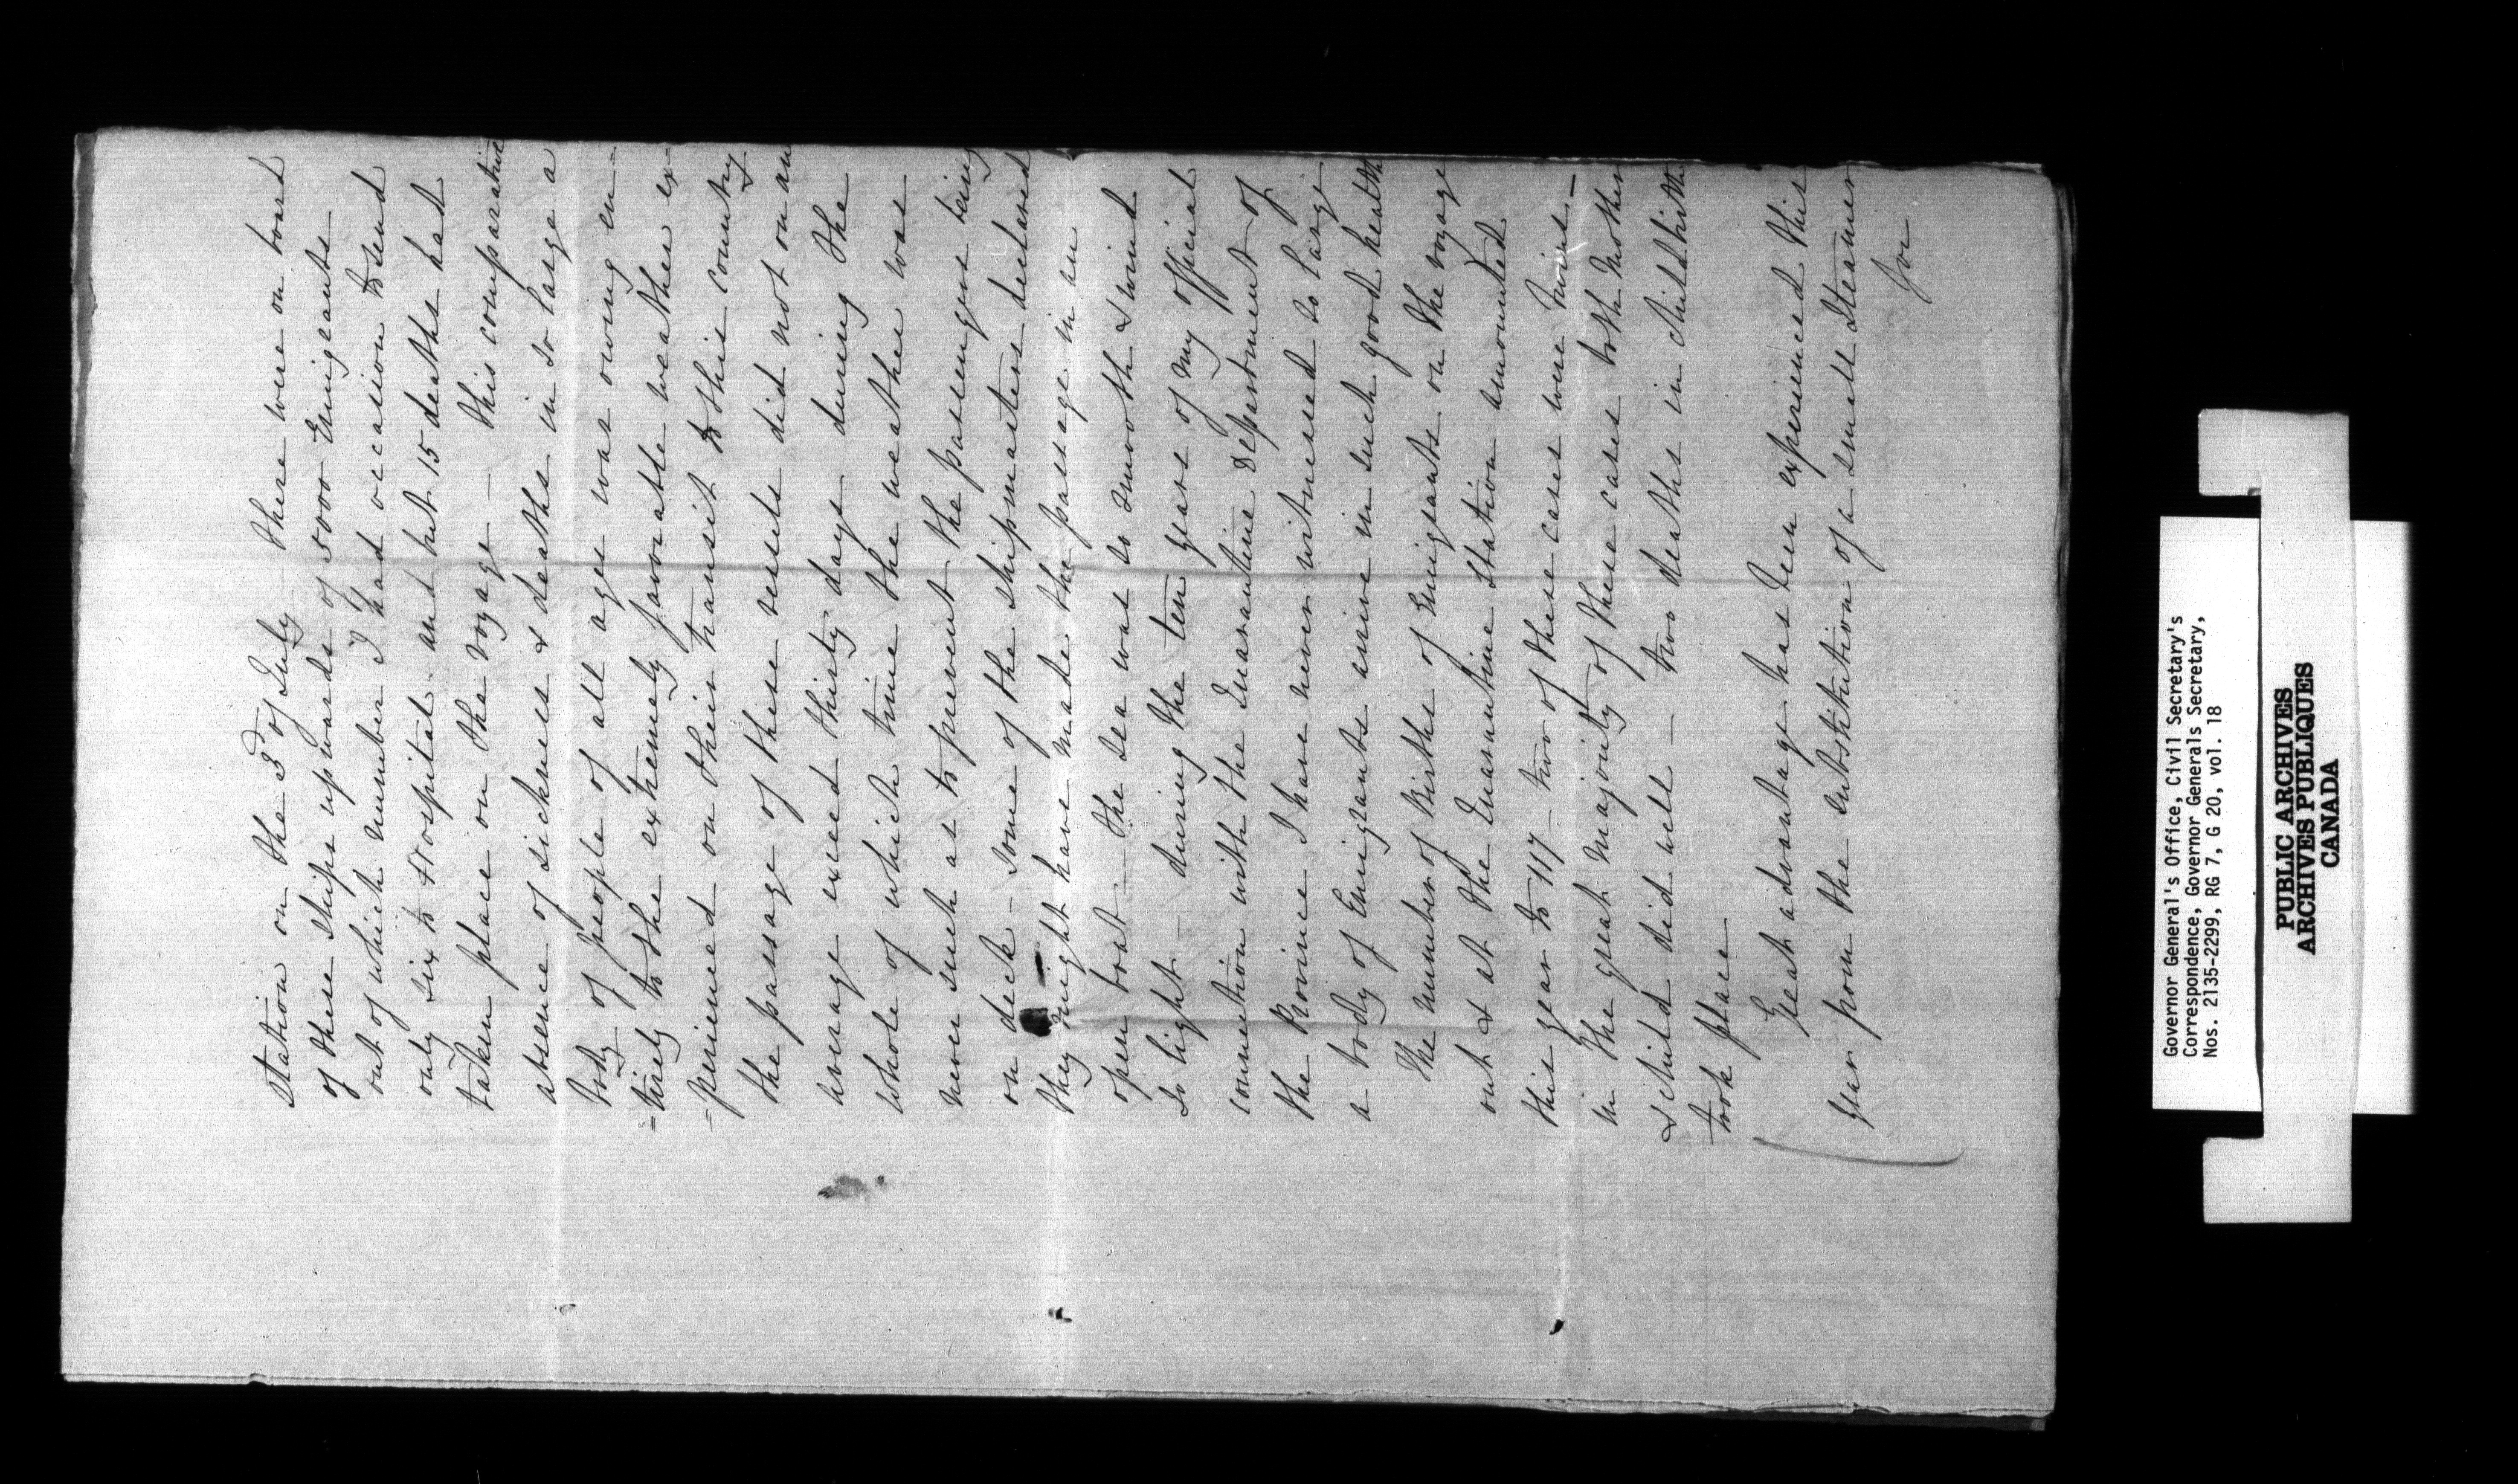 Station on the 3d of July – there were on board
of these ships upwards of 5000 Emigrants
out of which number I had occasion to send
only six to Hospital and but 15 deaths had
taken place on the voyage – this comparative
absence of sickness & deaths in so large a
body of people of all ages was owing en=
=tirely to the extremely favorable weather ex=
=perienced on their transit to this country
the passage of these vessels did not on an
average exceed thirty days during the
whole of which time the weather was
never such as to prevent the passengers being
on deck – some of the shipmasters declared
they might have made the passage in an
open boat – the sea was so smooth & wind
so light – during the ten years of my official
connection with the Quarantine Department of
the Province I have never witnessed so large
a body of Emigrants arrive in such good health
The number of Births of Emigrants on the voyage
out & at the Quarantine Station amounted
this year to 117 – two of these cases were twins –
in the great majority of these cases both Mother
& child did well – two deaths in childbirth
took place
Great advantage has been experienced this
year from the substitution of a small Steamer
for
Governor General's Office, Civil Secretary's
Correspondence, Governor Generals Secretary,
Nos. 2135-2299, RG 7, G 20, vol. 18
PUBLIC ARCHIVES
ARCHIVES PUBLIQUES
CANADA